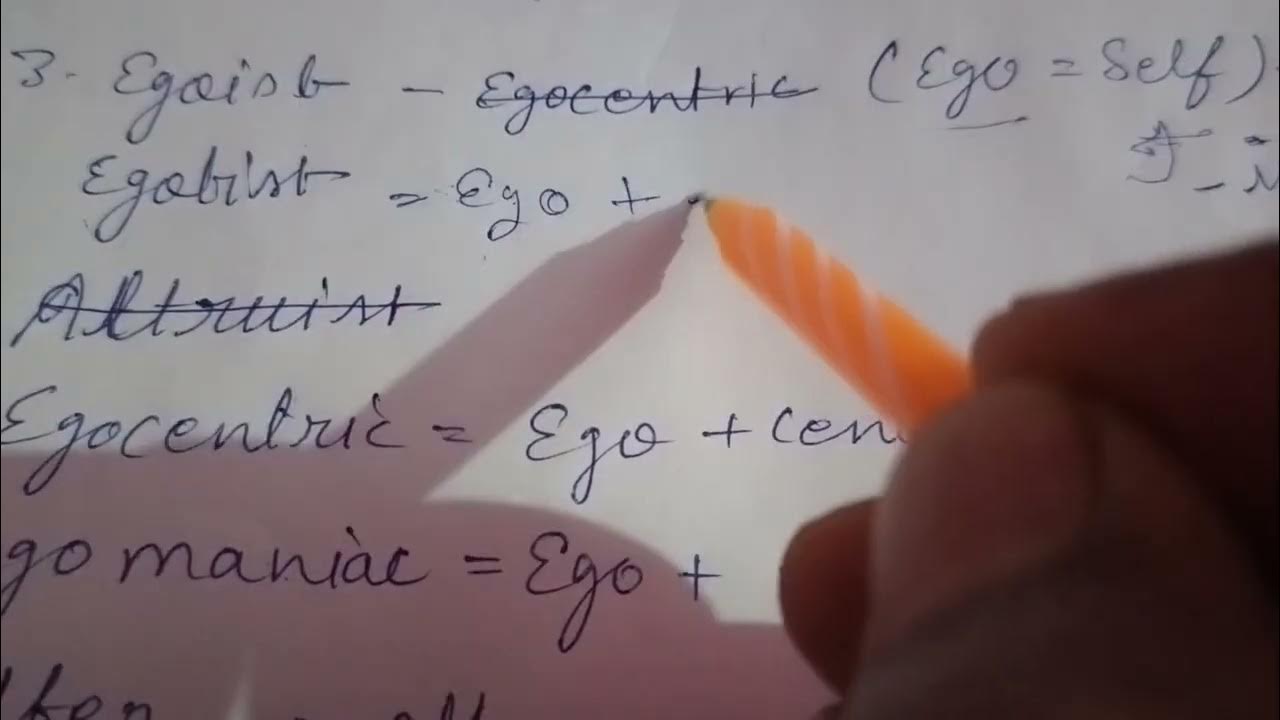 3. Egoist - Egocentric (Ego = Self)
Egotist = Ego +
Altruist
Egocentric = Ego + Cen
go maniac = Ego +